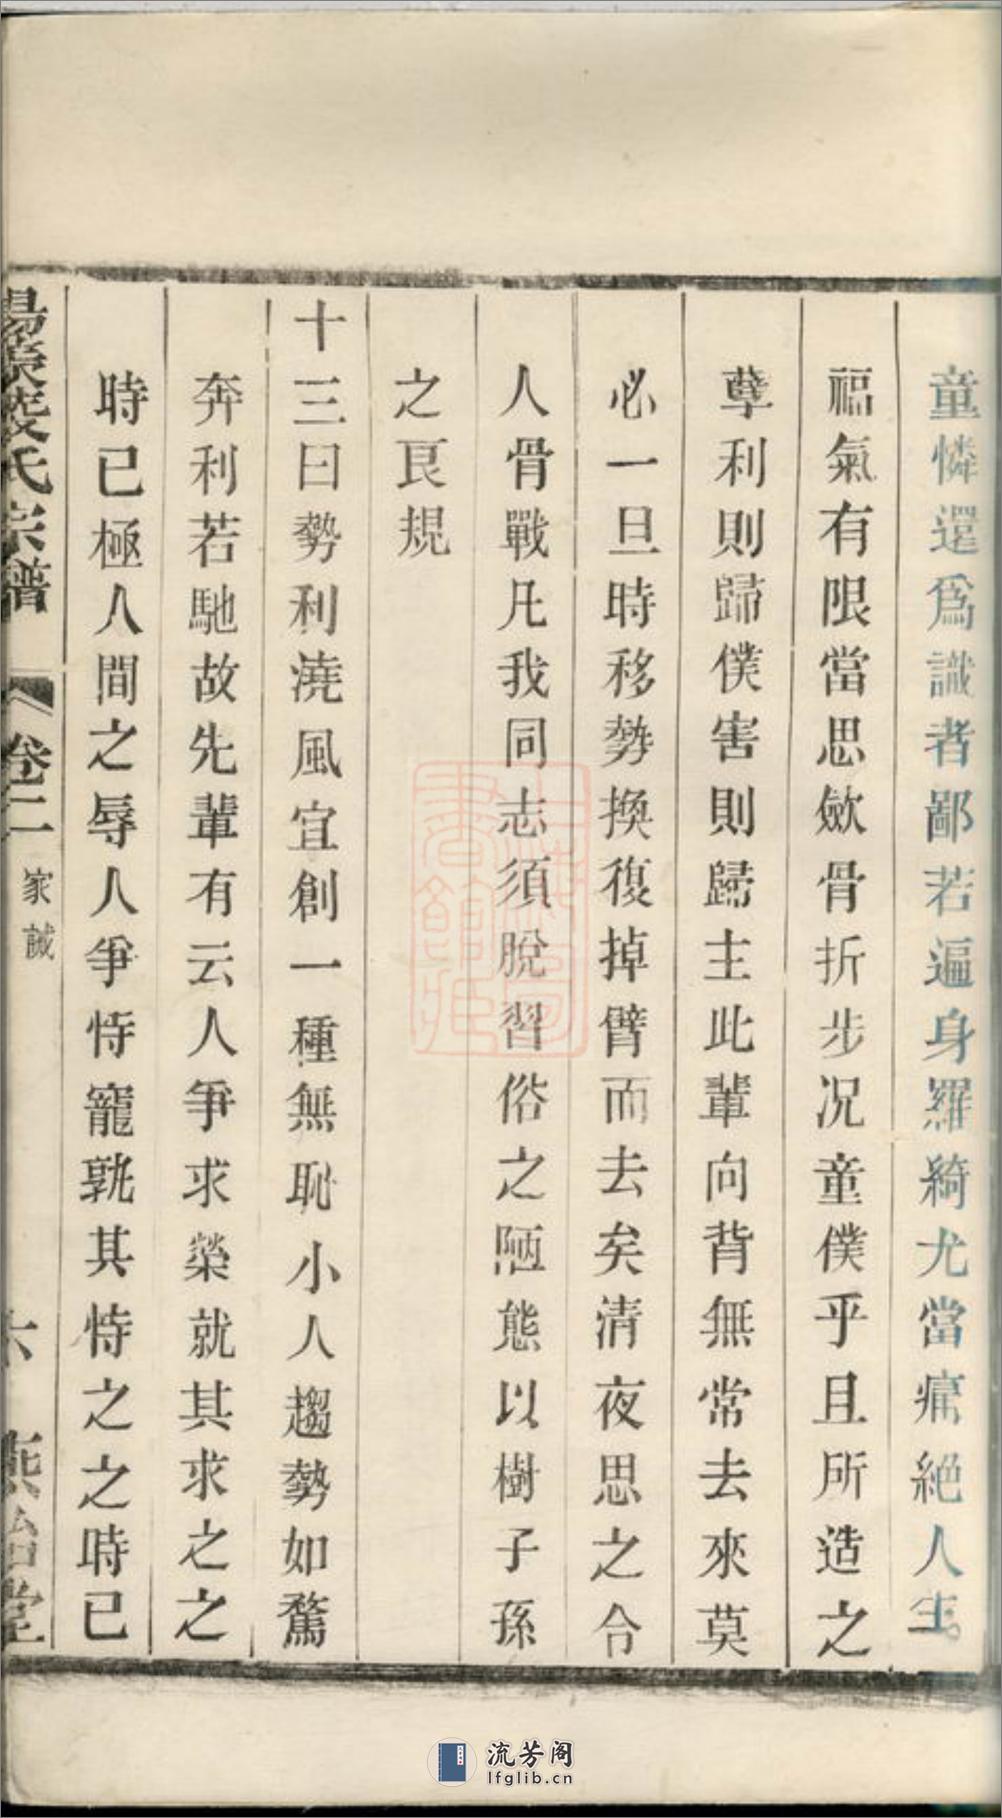 童憐還爲識者鄙若遍身羅綺尤當痛絕人生
福氣有限當思斂骨折步况童僕乎且所造之
孽利則歸僕害則歸主此輩向背無常去來莫
必一旦時移勢換復掉臂而去矣清夜思之令
人骨戰凡我同志須脫習俗之陋態以樹子孫
之良規
十三曰勢利澆風宜創一種無恥小人趨勢如騖
奔利若馳故先輩有云人爭求榮就其求之之
時已極人間之辱人爭恃寵孰其恃之之時已
氏宗譜
卷二
家誡
六
堂
流芳阁
lfglib.cn